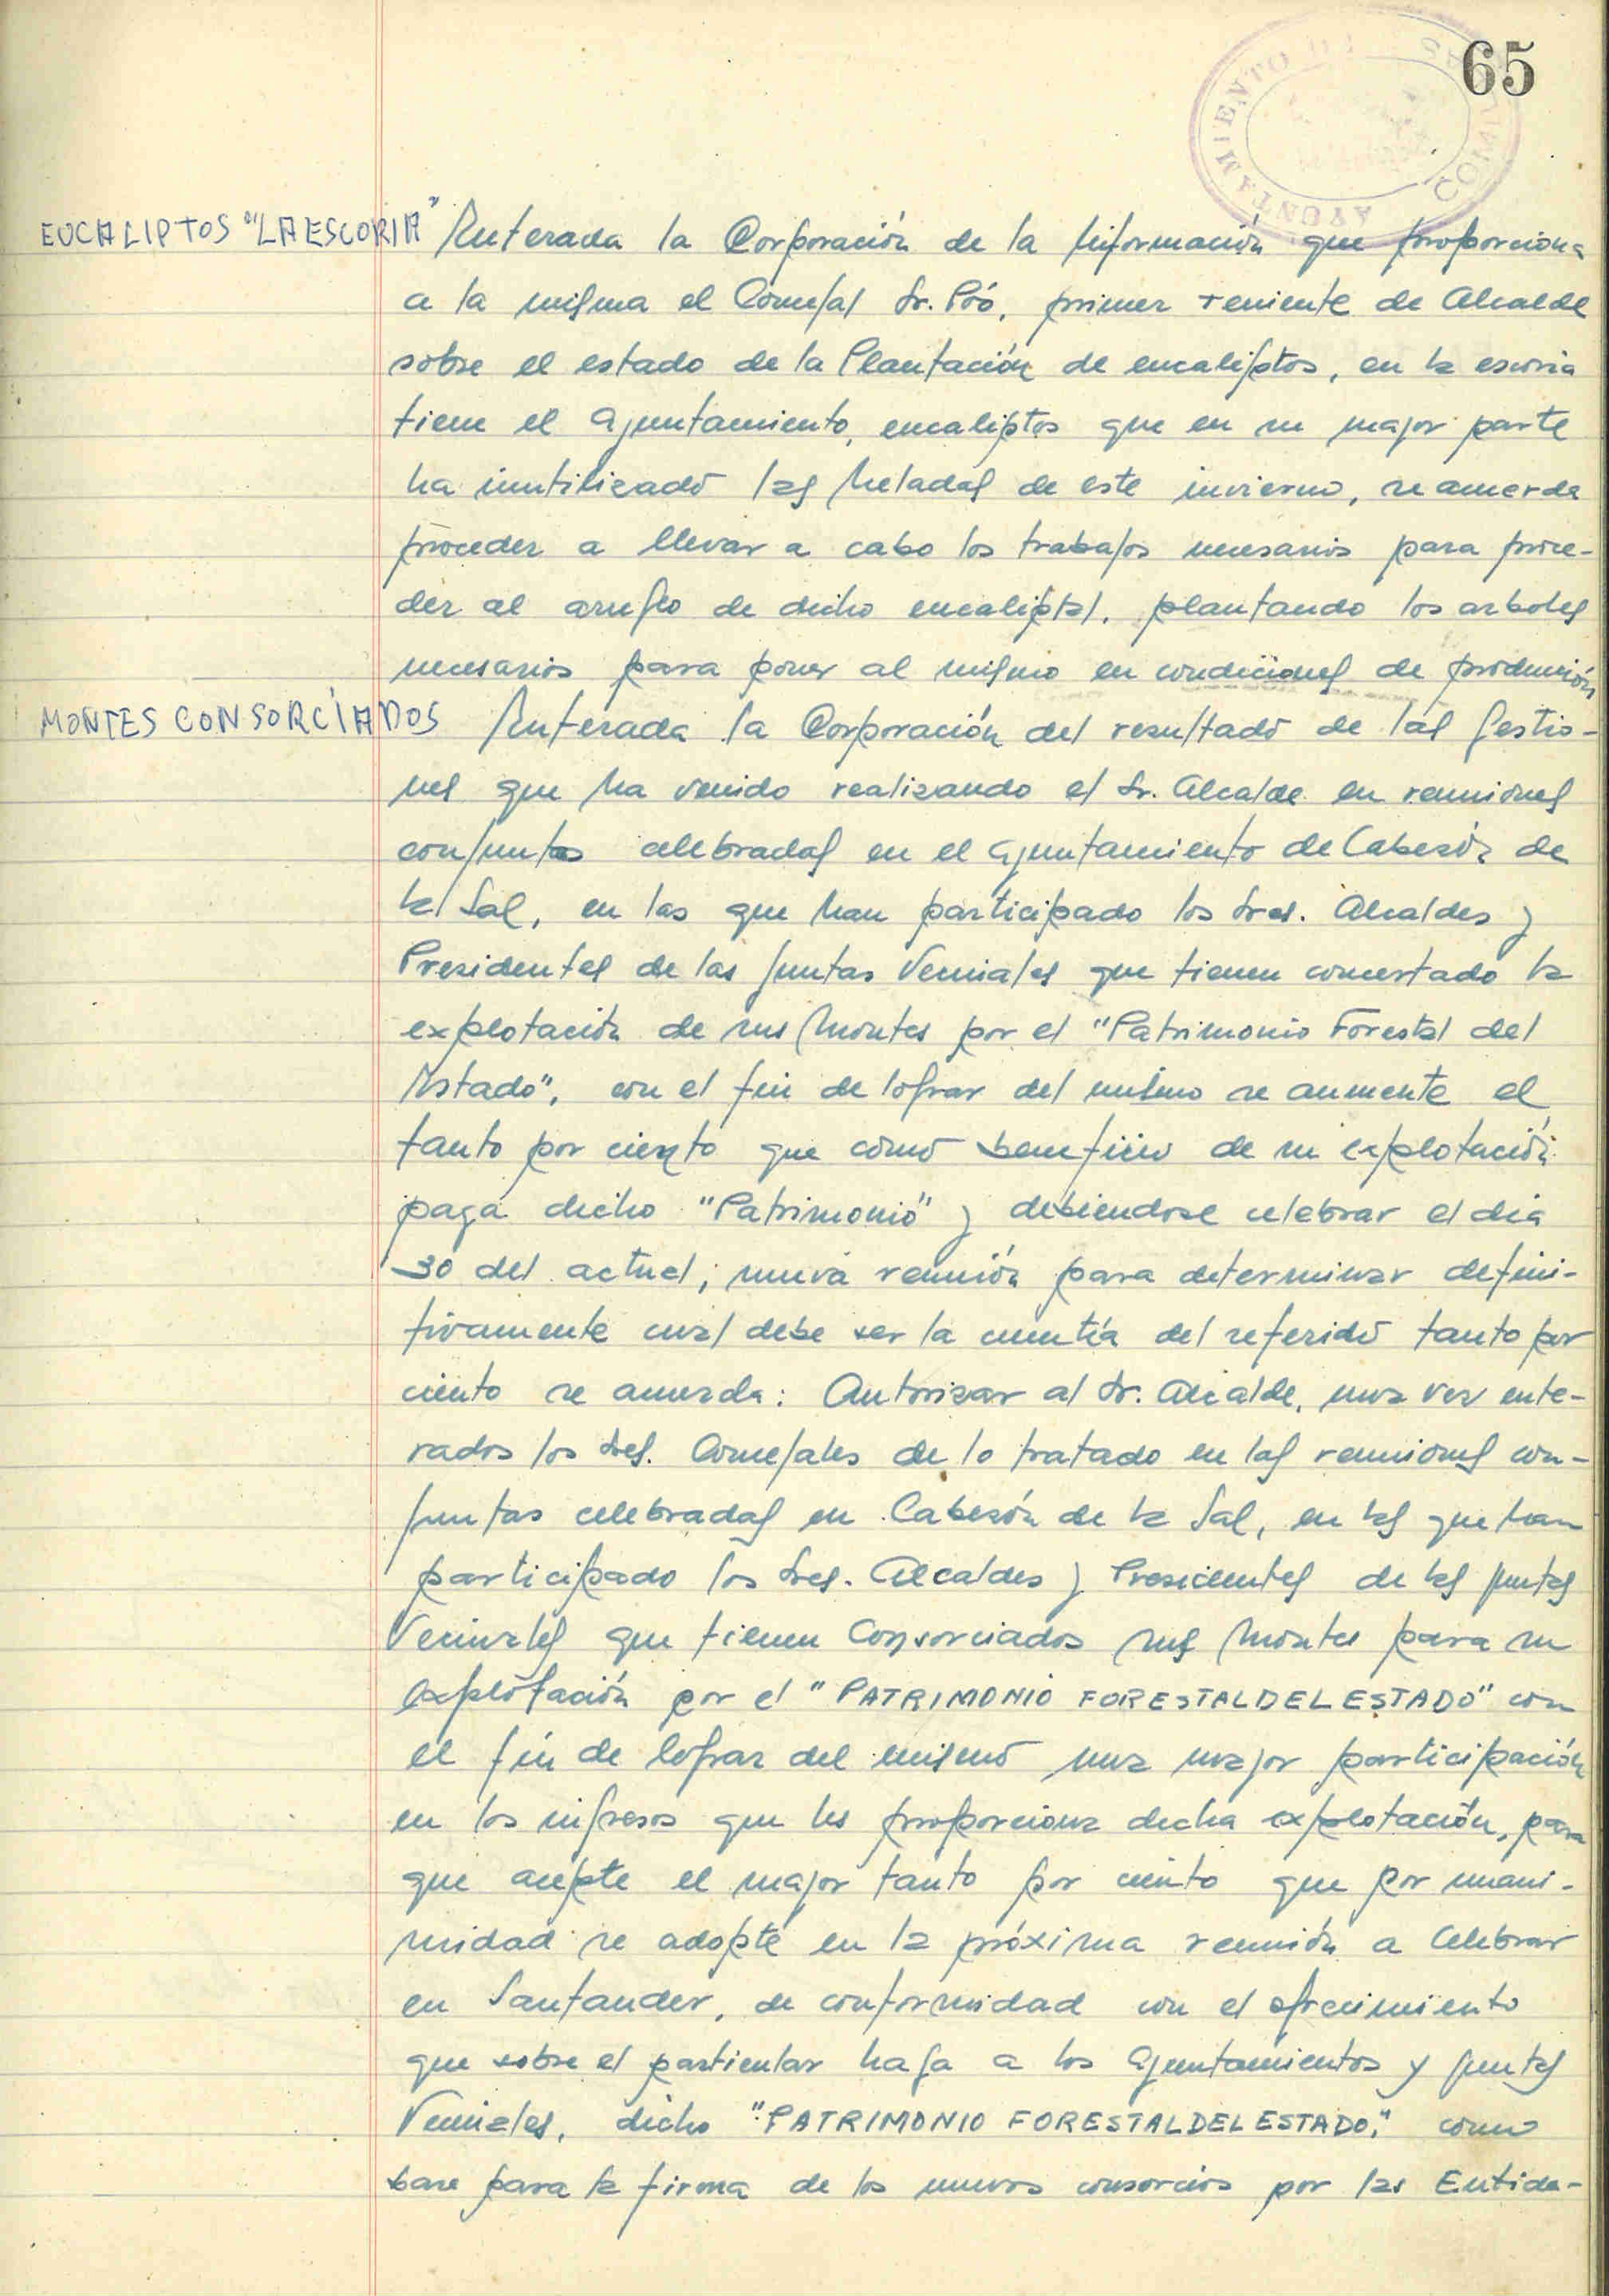 65
AYUNTAMIENTO DE COMILLAS
EUCALIPTOS "LA ESCORIA"
Enterada la Corporación de la información que proporciona
a la misma el Concejal Sr. Póo, primer teniente de Alcalde
sobre el estado de la Plantación de eucaliptos, en la escoria
tiene el Ayuntamiento, eucaliptos que en su mayor parte
ha inutilizado las heladas de este invierno, se acuerda
proceder a llevar a cabo los trabajos necesarios para proce-
der al arreglo de dicho eucaliptal, plantando los arboles
necesarios para poner al mismo en condiciones de producción
MONTES CONSORCÍADOS
Enterada la Corporación del resultado de las gestio-
nes que ha venido realizando el Sr. Alcalde en reuniones
conjuntas celebradas en el Ayuntamiento de Cabezón de
la Sal, en las que han participado los Sres. Alcaldes y
Presidentes de las Juntas Vecinales que tienen concertado la
explotación de sus Montes por el "Patrimonio Forestal del
Estado", con el fin de lograr del mismo se aumente el
tanto por ciento que como beneficio de su explotación
paga dicho "Patrimonio" y debiendose celebrar el dia
30 del actual, nueva reunión para determinar defini-
tivamente cual debe ser la cuantía del referido tanto por
ciento se acuerda: Autorizar al Sr. Alcalde, una vez ente-
rados los Sres. Concejales de lo tratado en las reuniones con-
juntas celebradas en Cabezón de la Sal, en las que han
participado los Sres. Alcaldes y Presidentes de las Juntas
Vecinales que tienen Consorciados sus Montes para su
explotación por el "PATRIMONIO FORESTAL DEL ESTADO" con
el fín de lograr del mismo una mayor participación
en los ingresos que les proporciona dicha explotación, para
que acepte el mayor tanto por ciento que por unani-
midad se adopte en la próxima reunión a Celebrar
en Santander, de conformidad con el ofrecimiento
que sobre el particular haga a los Ayuntamientos y Juntas
Vecinales, dicho "PATRIMONIO FORESTAL DEL ESTADO," como
base para la firma de los nuevos consorcios por las Entida-